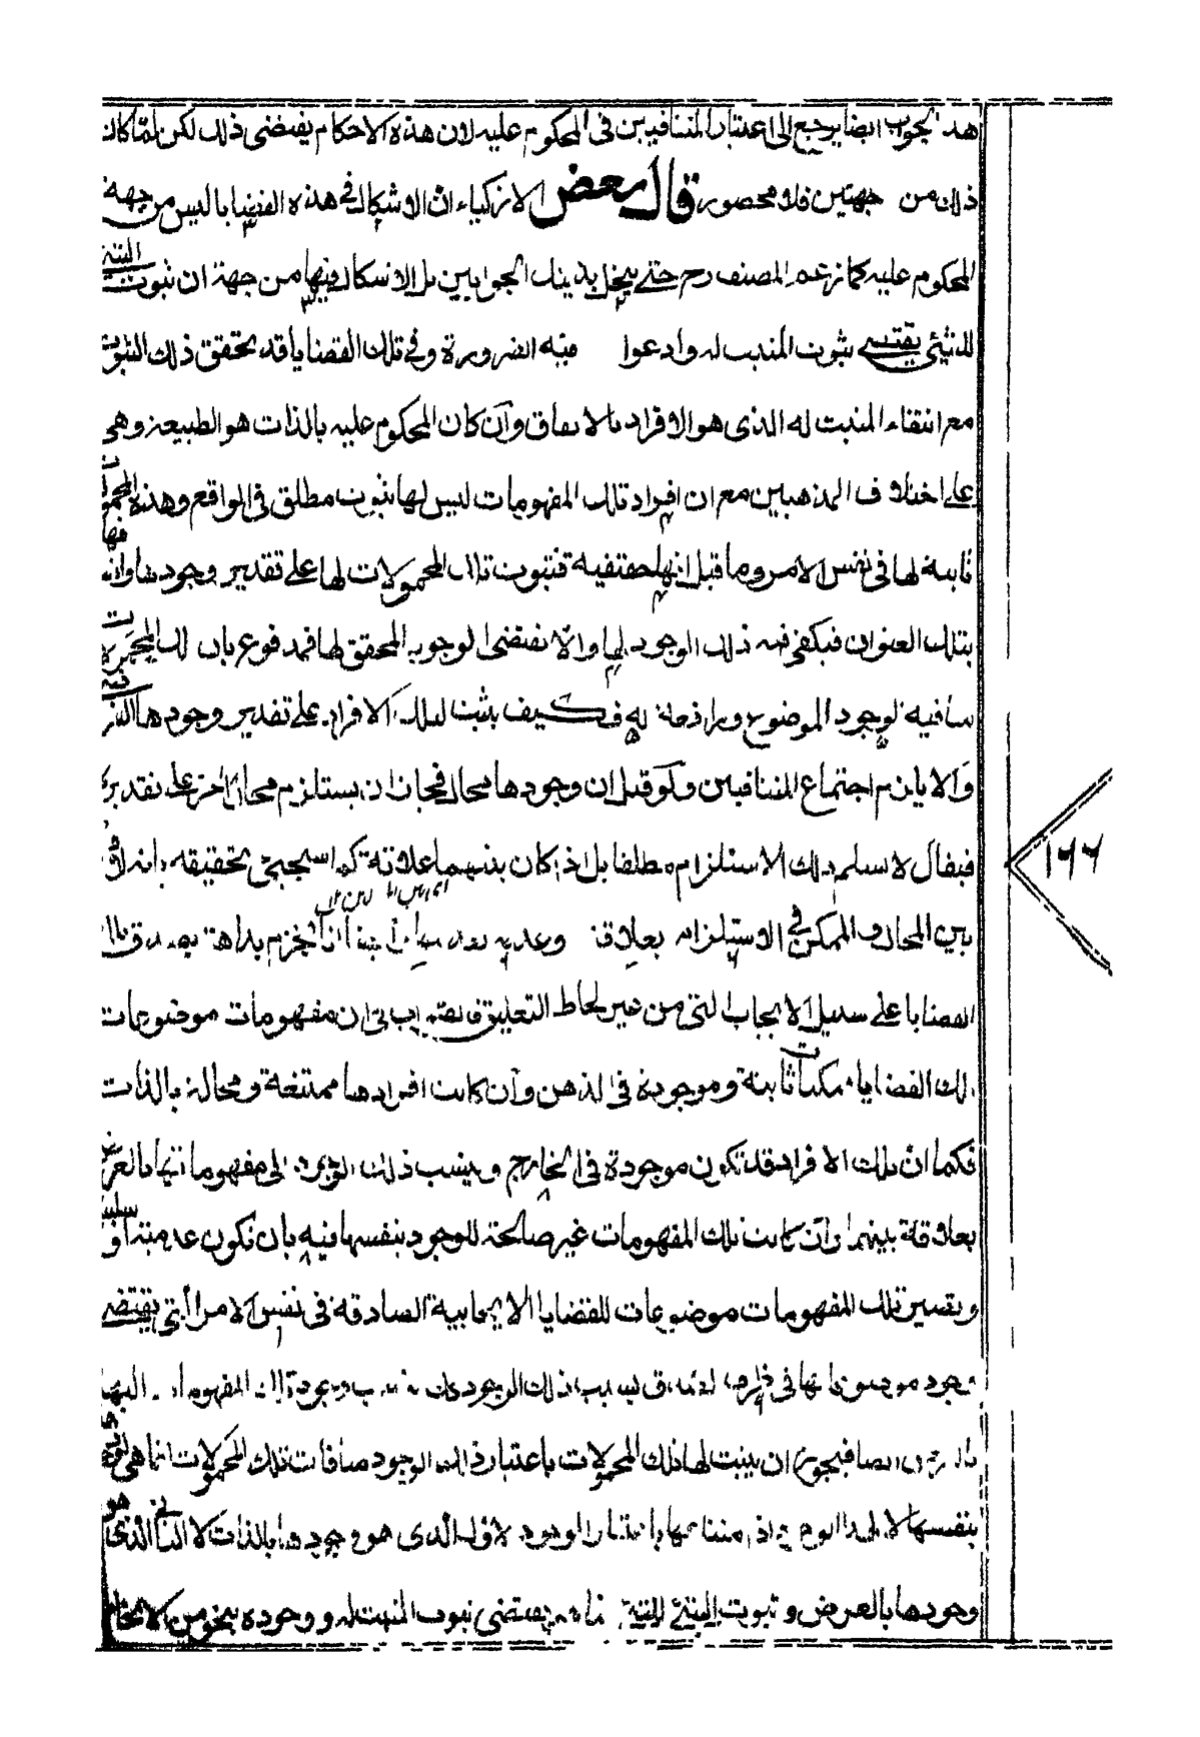 هذا الجواب ايضا يرجع الى اعتبار المتنافيين فى المحكوم عليه لان هذه الاحكام يقتضى ذلك لكن لما كان
ذلك من جهتين فلا محصور قال بعض الازكياء ان الاشكال فى هذه القضايا ليس من جهة
المحكوم عليه كما زعمه المصنف رح حتى ينحل بذينك الجوابين بل الاشكال فيها من جهة ان ثبوت الشئ
للشئ يقتضى ثبوت المثبت له وادعوا فيه الضرورة وفى تلك القضايا قد تحقق ذلك الثبوت
مع انتفاء المثبت له الذى هو الافراد بالاتفاق وان كان المحكوم عليه بالذات هو الطبيعة وهى
على اختلاف المذهبين مع ان افراد تلك المفهومات ليس لها ثبوت مطلق فى الواقع وهذه المحمولات
ثابتة لها فى نفس الامر وما قيل انها حقيقية فثبوت تلك المحمولات لها على تقدير وجودها واتصافها
بتلك العنوان فيكفى فيه ذلك الوجود لها ولا يقتضى الوجود المحقق لها فمدفوع بان تلك المحمولات
منافية لوجود الموضوع ورافعة له فكيف يثبت لتلك الافراد على تقدير وجودها
والا يلزم اجتماع المتنافيين ولو قيل ان وجودها محال فجاز ان يستلزم محالا اخر على تقديره
فيقال لا نسلم ذلك الاستلزام مطلقا بل اذا كان بينهما علاقة كما سيجئ تحقيقه بانه لا فرق
بين المحال والممكن فى الاستلزام بعلاقة وعدمه انا نجزم بداهة بصدق تلك
القضايا على سبيل الايجاب البتى من غير لحاط التعليق ان مفهومات موضوعات
تلك القضايا ممكنات ثابتة وموجودة فى الذهن وان كانت افرادها ممتنعة ومحالة بالذات
فكما ان تلك الافراد قد تكون موجودة فى الخارج وينسب ذلك الوجود الى مفهوماتها بالعرض
بعلاقة بينهما وان كانت تلك المفهومات غير صالحة للوجود بنفسها فيه بان تكون عدمية او سلبية
وتصير تلك المفهومات موضوعات للقضايا الايجابية الصادقة فى نفس الامر التى يقتضى
وجود موضوعاتها فى بسبب ذلك الوجود وجودة تلك المفهومات اليها
بالعرض ايضا فيجوز ان يثبت لها تلك المحمولات باعتبار ذلك الوجود منافات تلك المحمولات انما هى
بنفسها باعتبار الوجود الاول الذى هو وجودها بالذات لا الثانى الذى هو
وجودها بالعرض وثبوت الشئ للشئ يقتضى ثبوت المثبت له ووجوده بنحو من الانحاء
۱۶۶